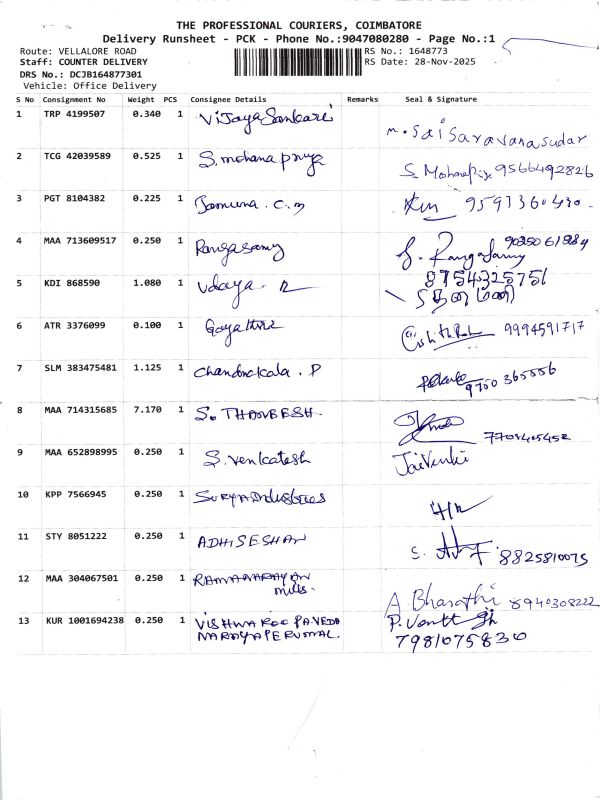 THE PROFESSIONAL COURIERS, COIMBATORE
Delivery Runsheet - PCK - Phone No.:9047080280 - Page No.:1
Route: VELLALORE ROAD RS No.: 1648773
Staff: COUNTER DELIVERY RS Date: 28-Nov-2025
DRS No.: DCJB164877301
Vehicle: Office Delivery
S No Consignment No Weight PCS Consignee Details Remarks Seal & Signature
1 TRP 4199507 0.340 1 VijayaSankari m. Sai Saravana sudar
2 TCG 42039589 0.525 1 S. mohana priya S. Mohanapriya 9566492826
3 PGT 8104382 0.225 1 Jamuna . C. m
4 MAA 713609517 0.250 1 Rangasamy S. RangaSamy
5 KDI 868590 1.080 1 Udaya . R 8754325751
6 ATR 3376099 0.100 1 Gayathri 9994591717
7 SLM 383475481 1.125 1 Chandrakala . P 9750 365556
8 MAA 714315685 7.170 1 S. THANVEESH
9 MAA 652898995 0.250 1 S. Venkatesh JaiVenki
10 KPP 7566945 0.250 1 Surya Industries
11 STY 8051222 0.250 1 ADHISESHAN 8825810075
12 MAA 304067501 0.250 1 RAMANARAYAN
mills. A Bharathi 8940308222
13 KUR 1001694238 0.250 1 VISHWAROOPAVEDA
NARAYAPERUMAL 7981075830